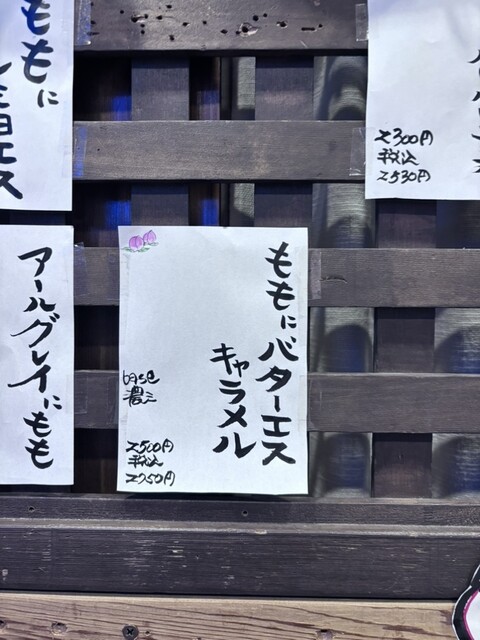 ももに
アールグレイにもも
ももにバターエス
キャラメル
base
濃ミ
2500円
税込
2750円
2300円
税込
2530円